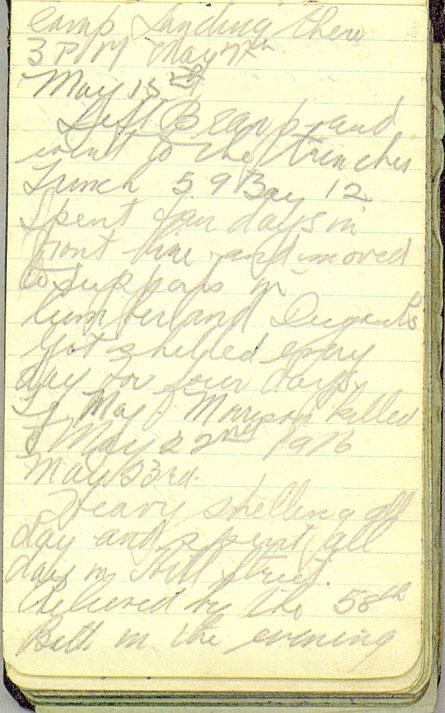 camp landing there
3 P M May 7th
May 15th
Left B Camp and
went to the trenches
Trench 59 Bay 12
Spent four days in
front line and moved
to supports in
Cumberland Dugouts
Got shelled every
day for four days.
Morrison killed
May 22nd 1916
May 23rd.
Heavy shelling all
day and spent all
day in Hill Street.
Relieved by the 58th
Batt in the evening